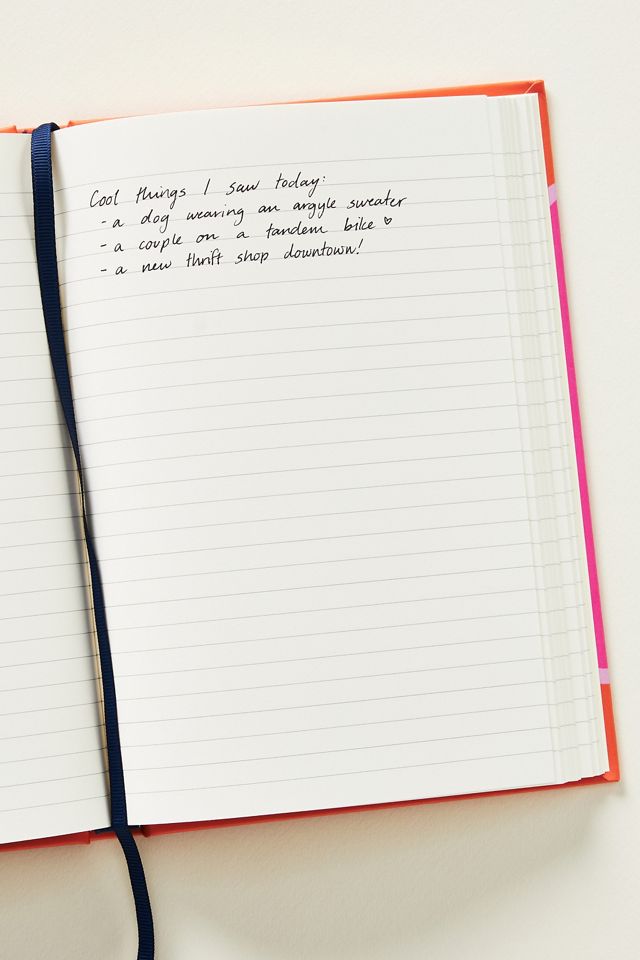 Cool things I saw today:
- a dog wearing an argyle sweater
- a couple on a tandem bike ♡
- a new thrift shop downtown!